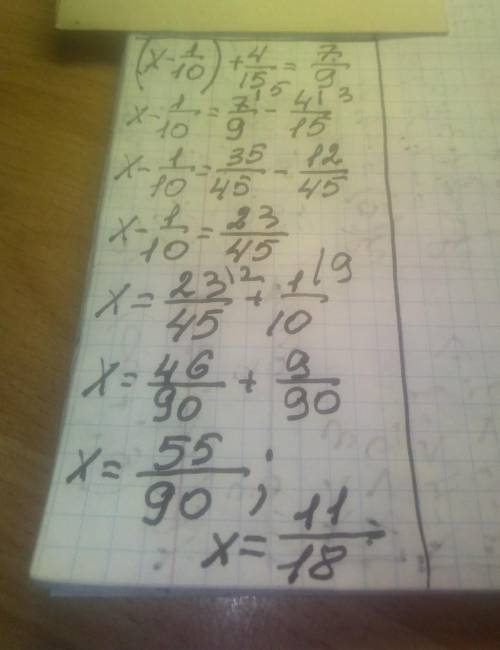 (x - 1/10) + 4/15 = 7/9
x - 1/10 = 7/9 |5 - 4/15 |3
x - 1/10 = 35/45 - 12/45
x - 1/10 = 23/45
x = 23/45 |2 + 1/10 |9
x = 46/90 + 9/90
x = 55/90 ;
x = 11/18